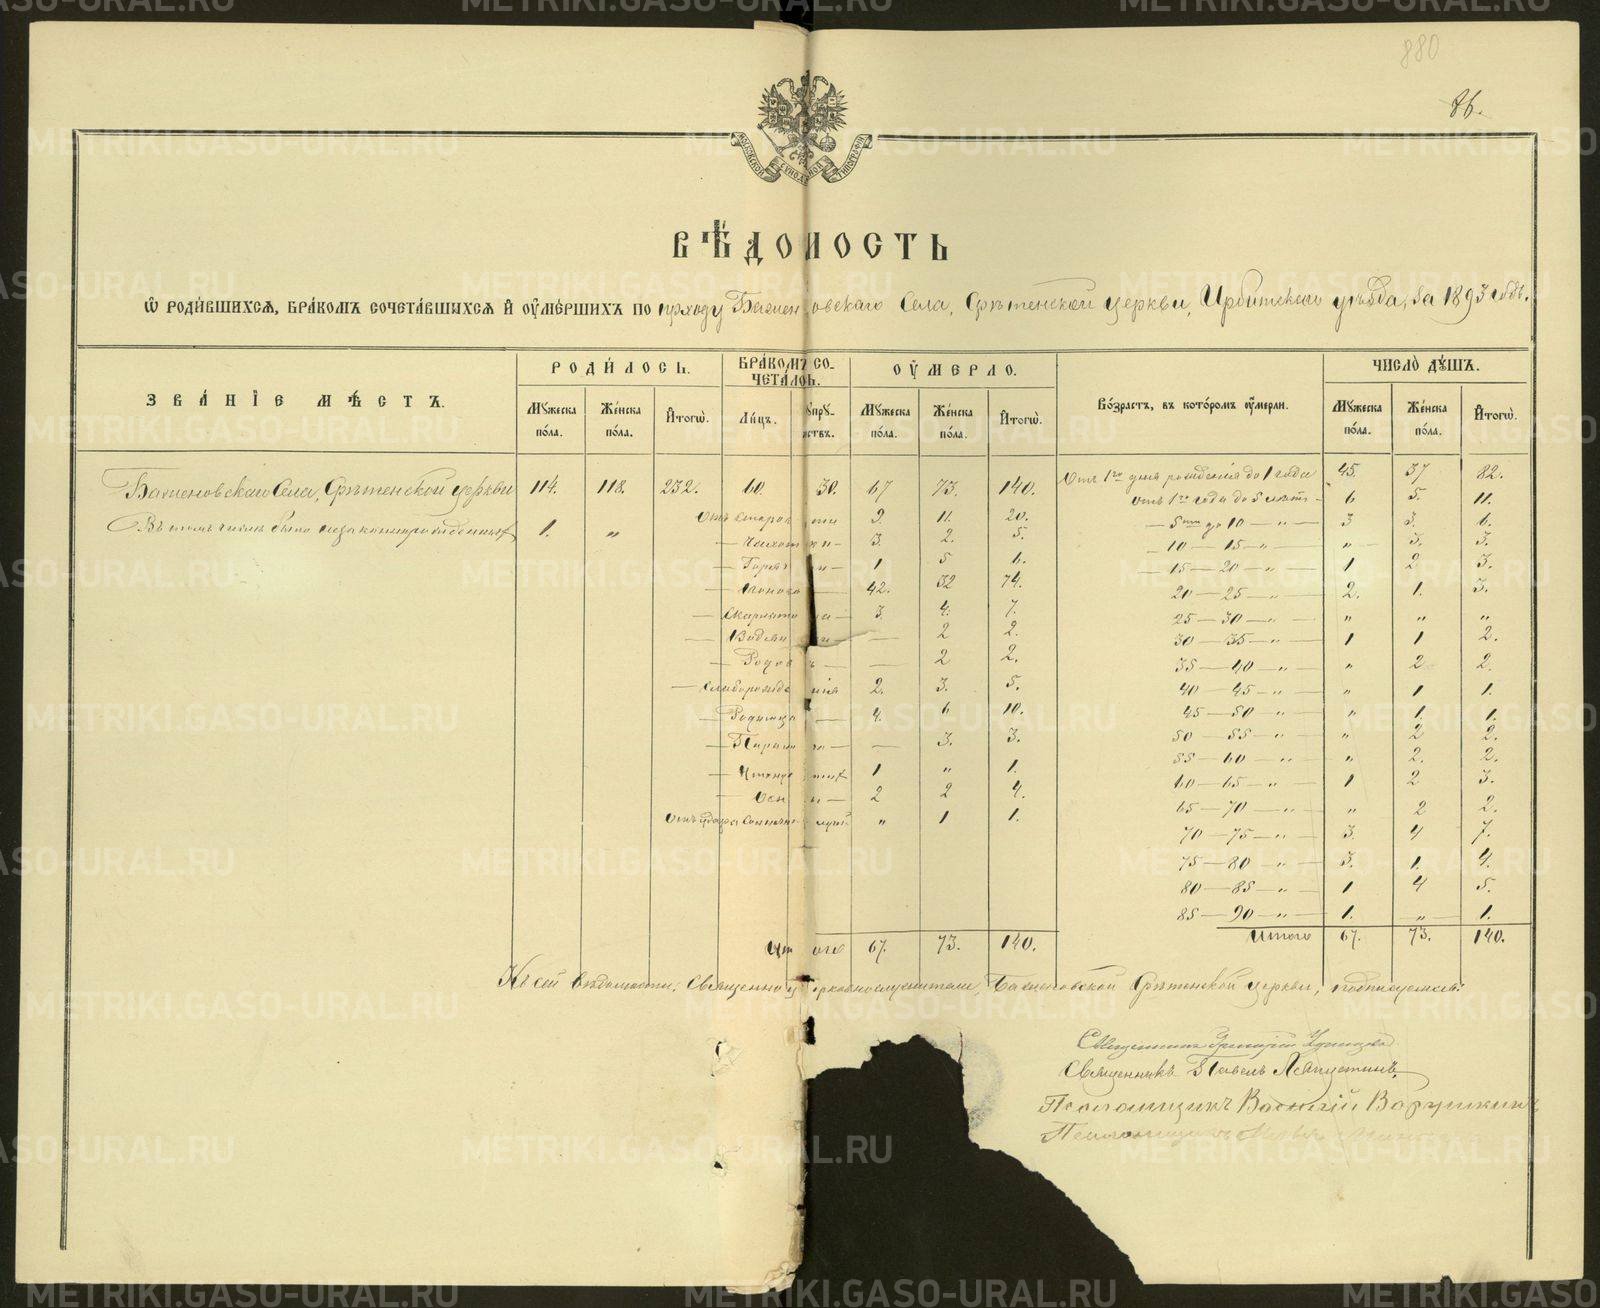 880
86.
МОСКОВСКОЙ СѴНОДАЛ ТИПОГРАФІИ
ВѢДОМОСТЬ
Ѡ РОДИВШИХСЯ, БРАКОМЪ СОЧЕТАВШИХСЯ И ОУМЕРШИХЪ ПО приходу Бахменовскаго Села, Срѣтенской церкви, Ирбитскаго уѣзда, за 1893 годъ.
ЗВАНІЕ МѢСТЪ. РОДИЛОСЬ. БРАКОМЪ СОЧЕТАЛОСЬ. ОУМЕРЛО. Возрастъ, въ которомъ оумерли. ЧИСЛО ДУШЪ.
Мужеска пола. Женска пола. Итогѡ. Лицъ. Супружествъ. Мужеска пола. Женска пола. Итогѡ. Мужеска пола. Женска пола. Итогѡ.
Бахменовскаго Села, Срѣтенской церкви 114. 118. 232. 60. 30. 67 73. 140. Отъ 1го дня рожденія до 1 года 45. 37 82.
отъ 1го года до 5 лѣтъ 6 5. 11.
Въ томъ числѣ было незаконнорожденныхъ 1. „
Отъ старости 9. 11. 20. — 5ти до 10 — „ — 3 3. 6.
— Чахотки — 3. 2. 5. — 10 — 15 — „ — „ 3. 3.
— 1 5 6. — 15 — 20 — „ — 1 2 3.
— Поноса — 42. 32 74. 20 — 25 — „ — 2. 1. 3.
— Скарлатина — 3 4. 7. 25 — 30 — „ — „ „ „
— — 2 2. 30 — 35 — „ — 1 1 2.
— Родовъ — — 2 2. 35 — 40 — „ — „ 2 2.
— Слаборожденія 2. 3. 5. 40 — 45 — „ — „ 1 1.
— Родимца — 4. 6 10. 45 — 50 — „ — „ 1. 1.
— — 3. 3. 50 — 55 — „ — „ 2 2.
— 1 „ 1. 55 — 60 — „ — „ 2. 2.
— Оспы — 2 2 4. 60 — 65 — „ — 1 2 3.
Отъ удара 1 1. 65 — 70 — „ — „ 2 2.
70 — 75 — „ — 3. 4 7.
75 — 80 — „ — 3. 1. 4.
80 — 85 — „ — 1 4 5.
85 — 90 — „ — 1. „ 1.
Итого 67. 73. 140. Итого 67. 73. 140.
Къ сей вѣдомости, Священно-церковнослужители, Бахменовской Срѣтенской церкви, подписуемся:
Священникъ Григорій Удинцевъ
Священникъ Павелъ Ляпустинъ
Псаломщикъ Василій Варушкинъ
Псаломщикъ
METRIKI.GASO-URAL.RU